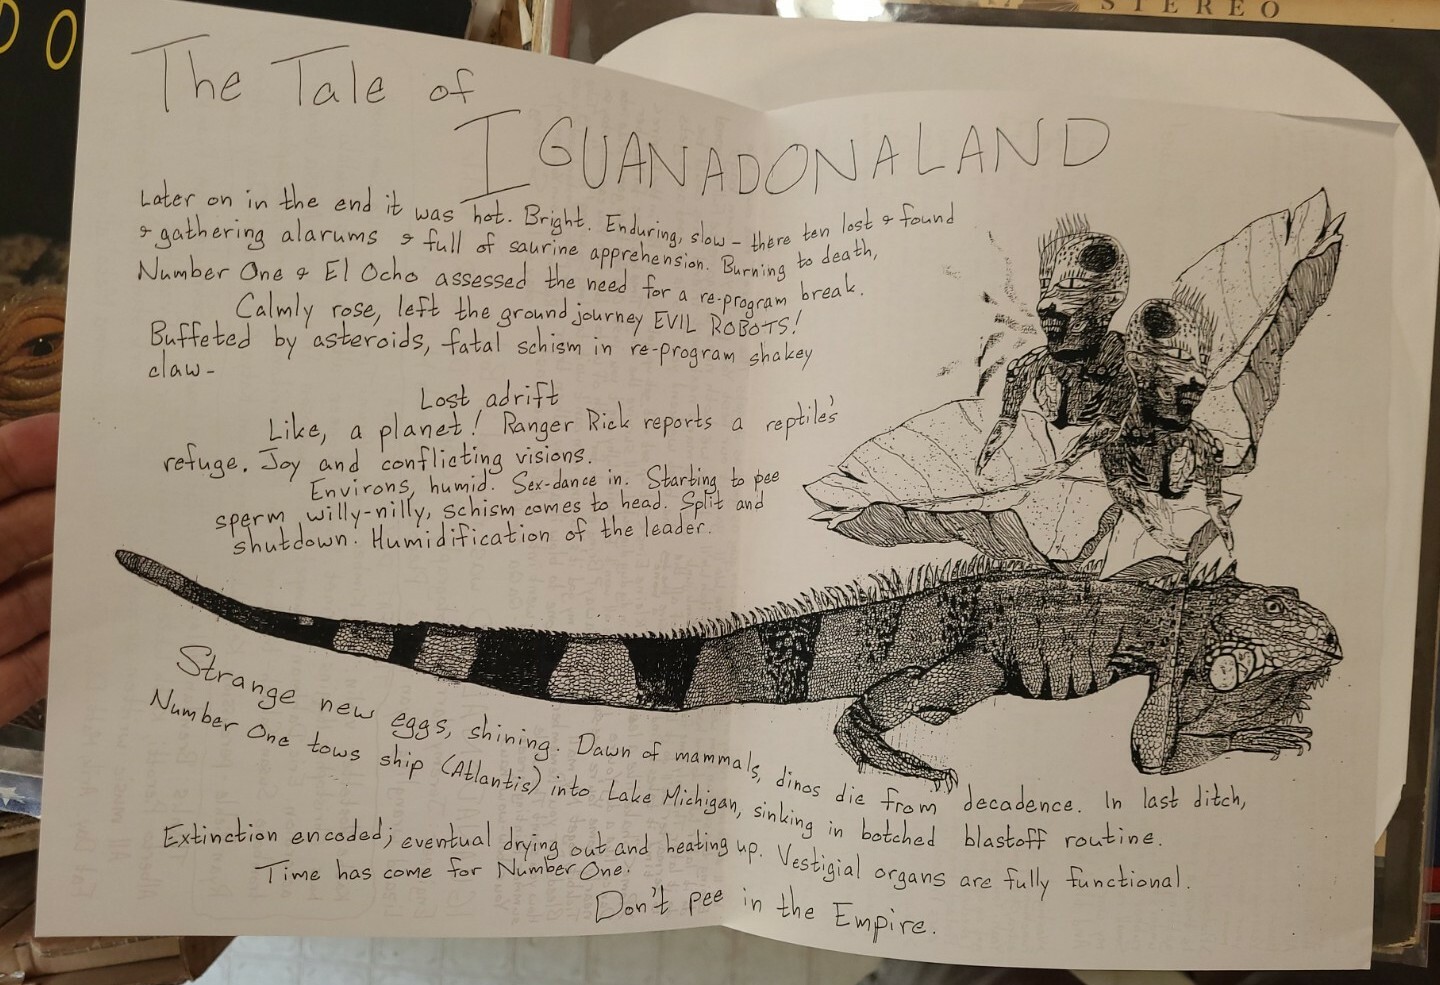 STEREO
The Tale of
IGUANADONALAND
Later on in the end it was hot. Bright. Enduring, slow - there ten lost & found
& gathering alarums & full of saurine apprehension. Burning to death,
Number One & El Ocho assessed the need for a re-program break.
Calmly rose, left the ground journey EVIL ROBOTS!
Buffeted by asteroids, fatal schism in re-program shakey
claw-
Lost adrift
Like, a planet! Ranger Rick reports a reptile's
refuge. Joy and conflicting visions.
Environs, humid. Sex-dance in. Starting to pee
sperm willy-nilly, schism comes to head. Split and
shutdown. Humidification of the leader.
Strange new eggs, shining. Dawn of mammals, dinos die from decadence. In last ditch,
Number One tows ship (Atlantis) into Lake Michigan, sinking in botched blastoff routine.
Extinction encoded; eventual drying out and heating up. Vestigial organs are fully functional.
Time has come for Number One.
Don't pee in the Empire.